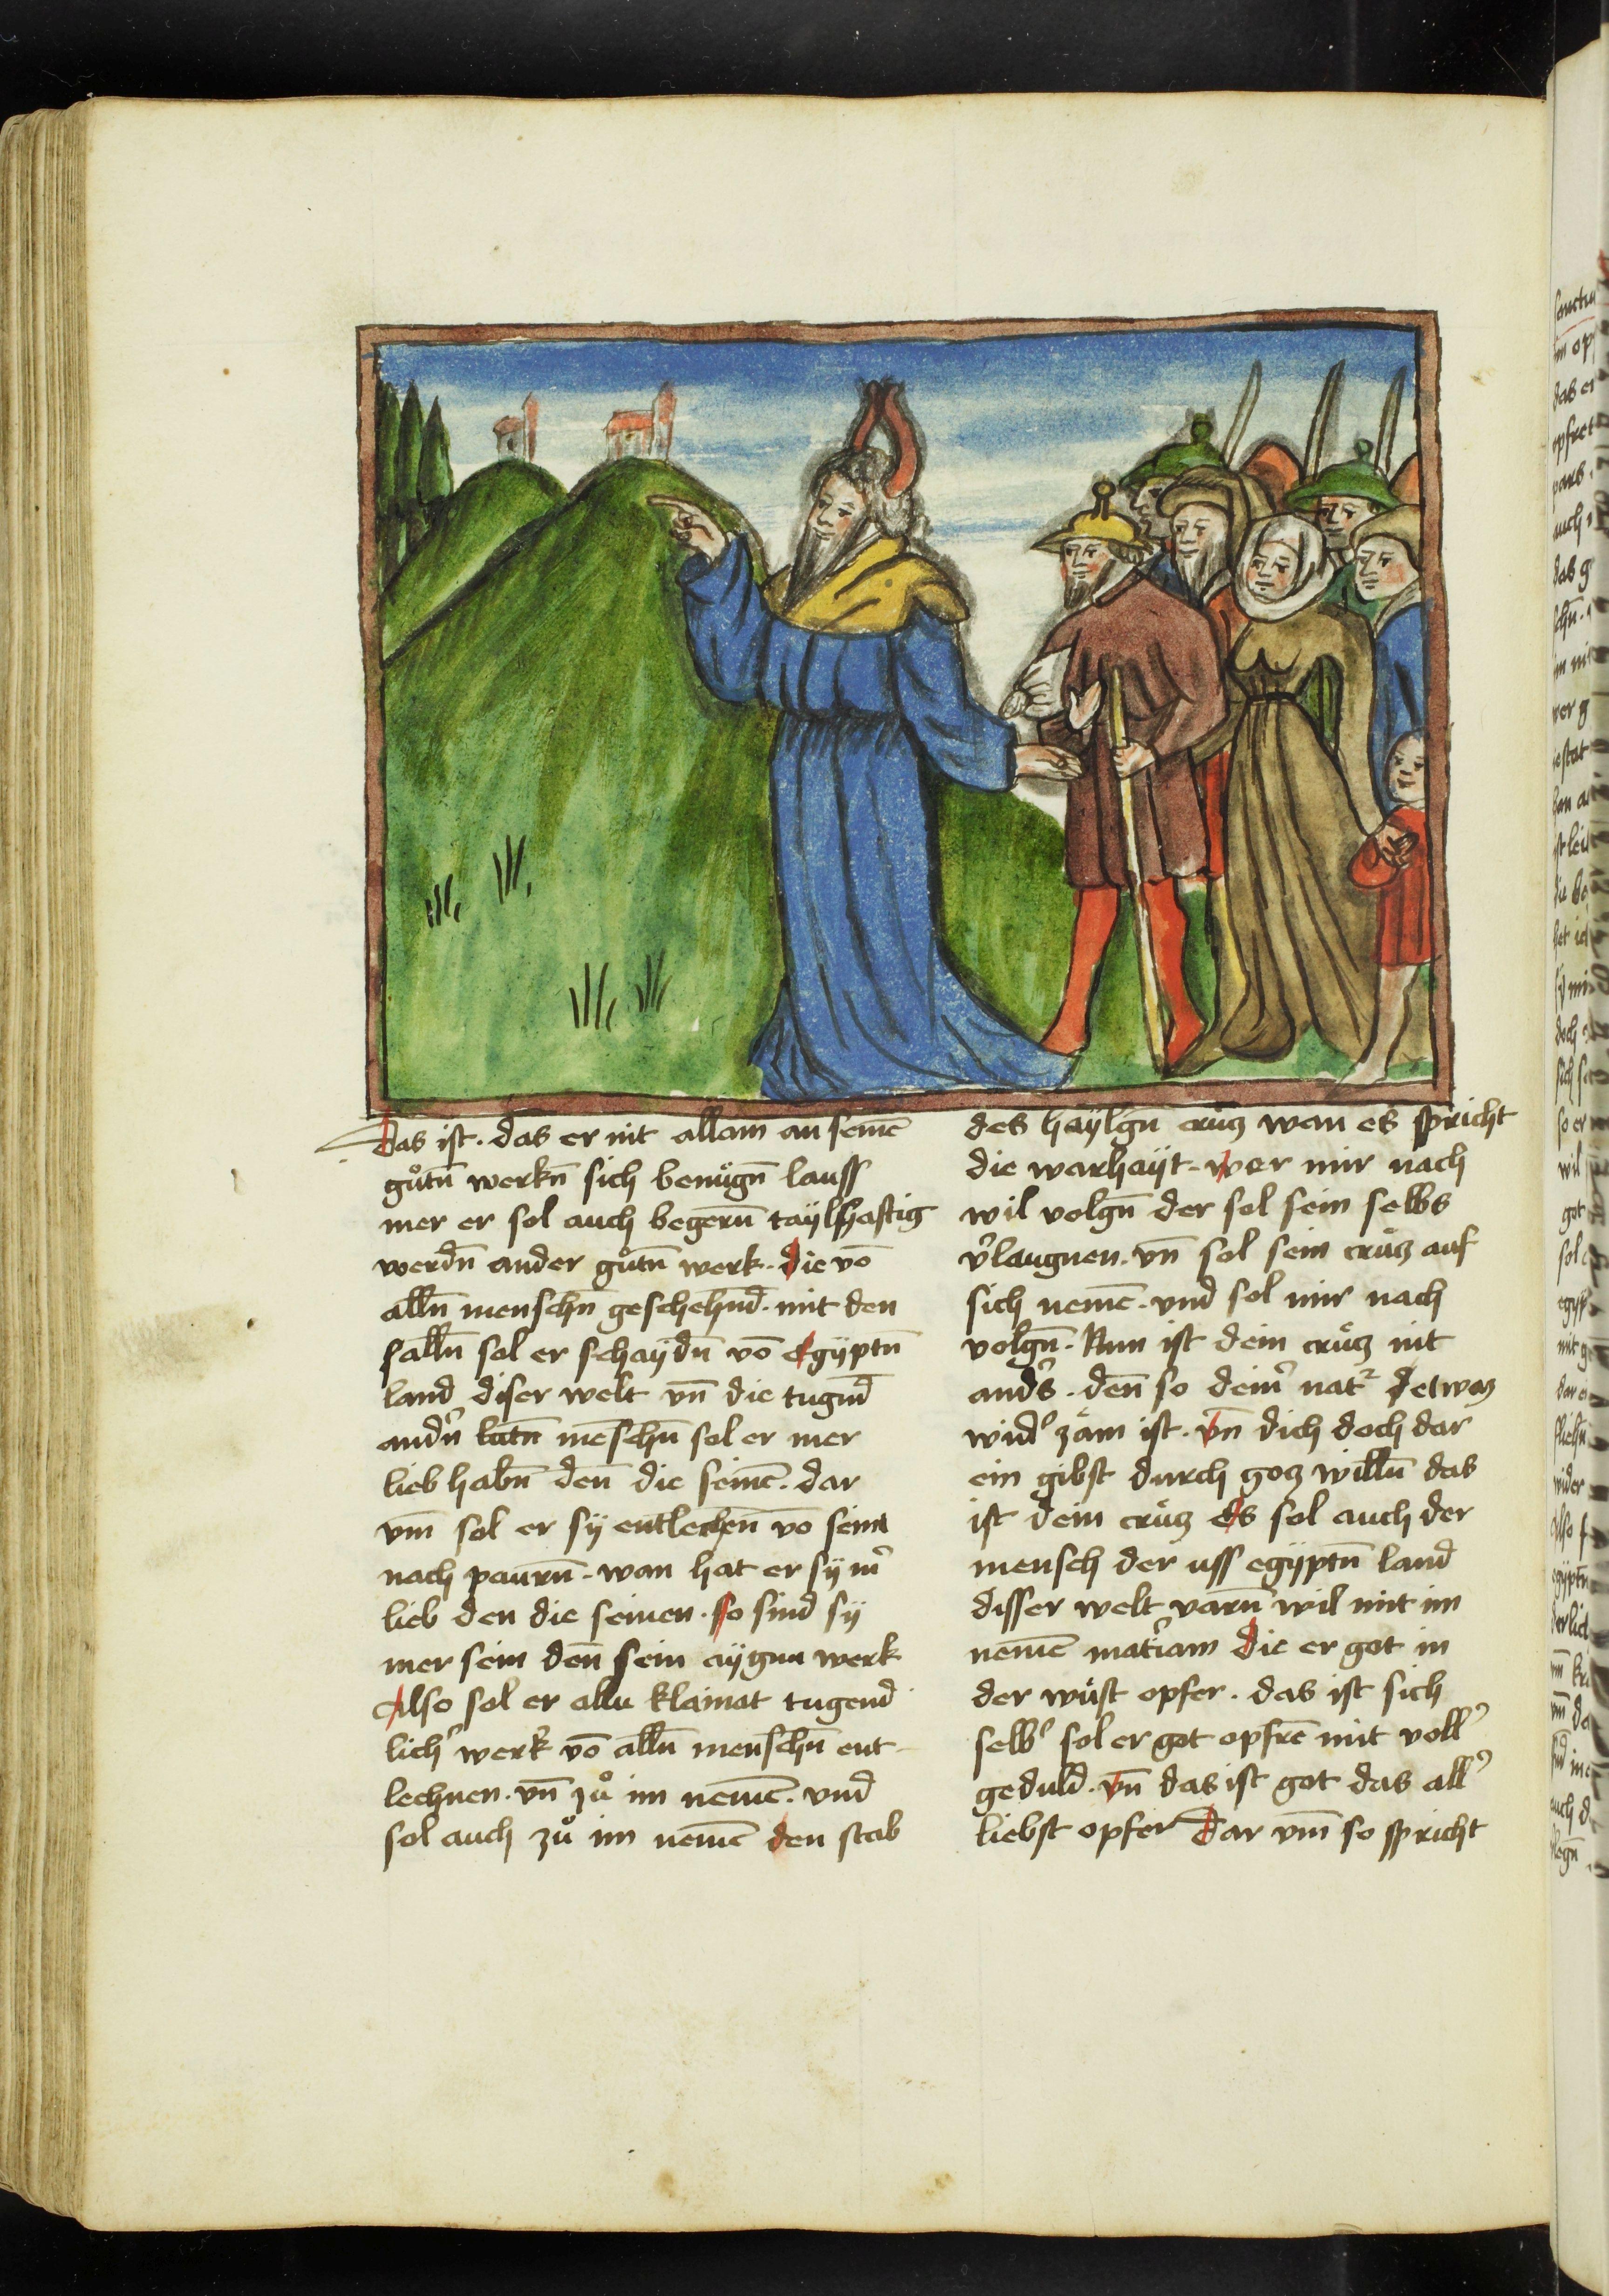 Das ist. das er nit allain an seinē
gůtn̄ werkn̄ sich benůgn̄ lauss
mer er sol auch begern̄ taÿlhafftig
werdn̄ ander gůtn̄ werk. die vō
alln̄ menschn̄ geschehnd̄. mit den
salln̄ sol er schaÿdn̄ vō Egÿptn̄
land diser welt vn̄ die tugnd̄
andn̄ lütn̄ mēschn̄ sol er mer
lieb habn̄ den̄ die seinē. dar
vm̄ sol er sÿ entlechen̄ vō seinn
nach paurn̄. wan hat er sÿ m̄
lieb den die seinen. so sind sÿ
mer sein den̄ sein aÿgnn werk
Also sol er allu klainat tugend
lich̉ werk vō alln̄ menschn̄ ent
lechnen. vn̄ zů im nemē. vnd
sol auch zů im nemē den stab
des haÿlgn̄ crücz wan es spricht
die warhaÿt. wer mir nach
wil volgn̄ der sol sein selbs
v̉laugnen. vn̄ sol sein crücz auf
sich nemē. vnd sol mir nach
volgn̄. Nun ist dein crücz nit
and̉s. den̄ so dein̉ nat² etwaz
wid̉ zäm ist. vn̄ dich doch dar
ein gibst durch gocz willn̄ das
ist dein crücz Es sol auch der
mensch der uss egÿptn̄ land
disser welt varn̄ wil mit im
nemē mat̉iam Die er got in
der wüst opfer. das ist sich
selb̉ sol er got opfrē mit voll̉
geduld. vn̄ das ist got das all̉
liebst opfer Dar vm̄ so spricht